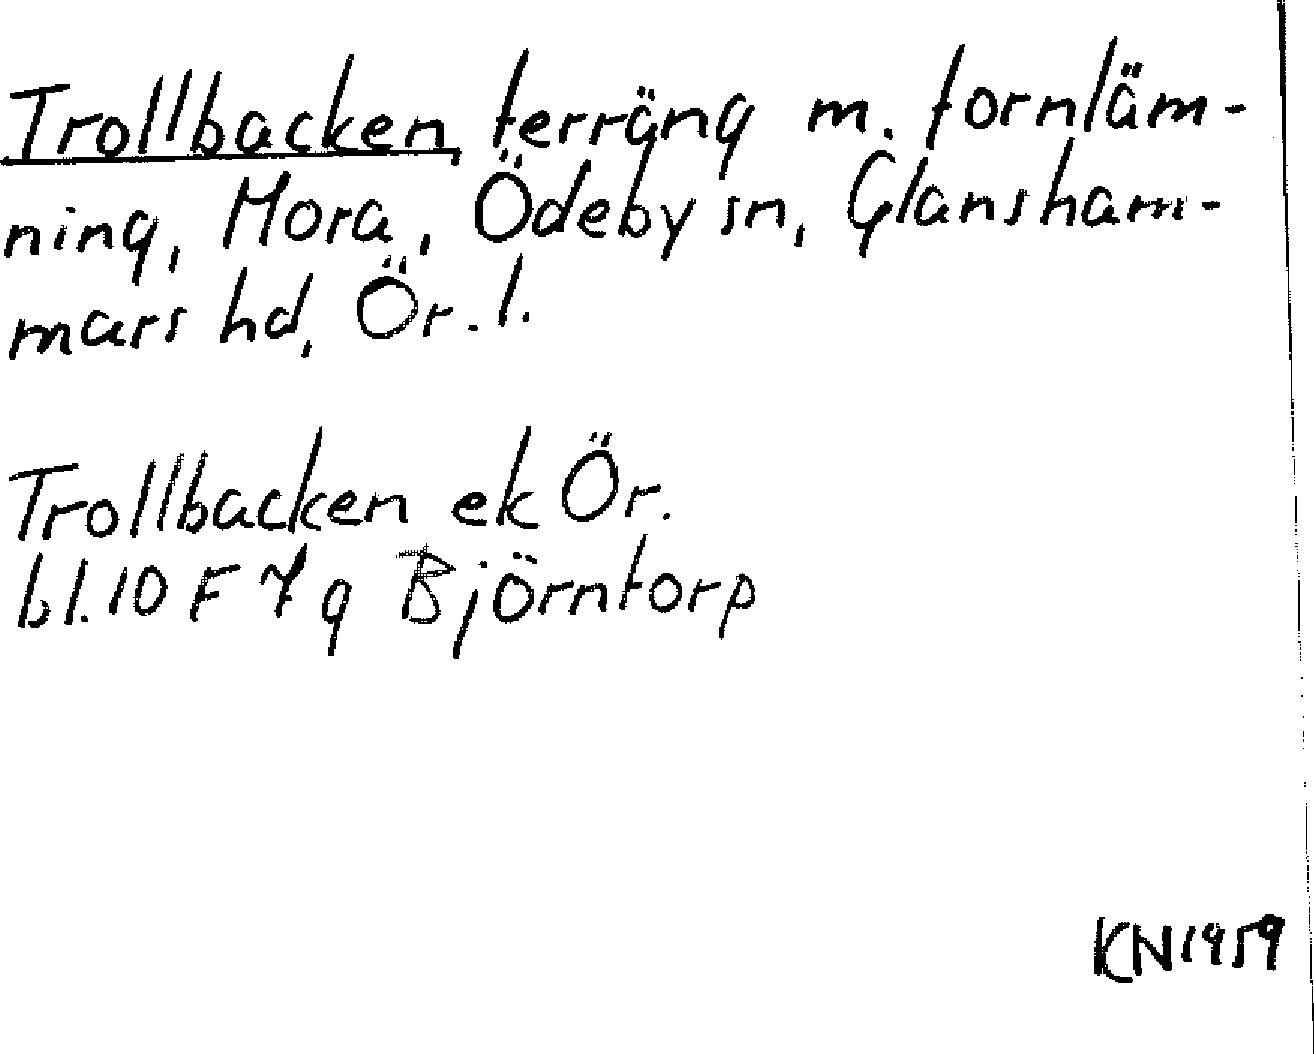 Trollbacken, terräng m. fornläm-
ning, Mora, Ödeby sn, Glansham-
mars hd, Ör. l.
Trollbacken ek Ör.
bl. 10 F 7 g Björntorp
KN 1959